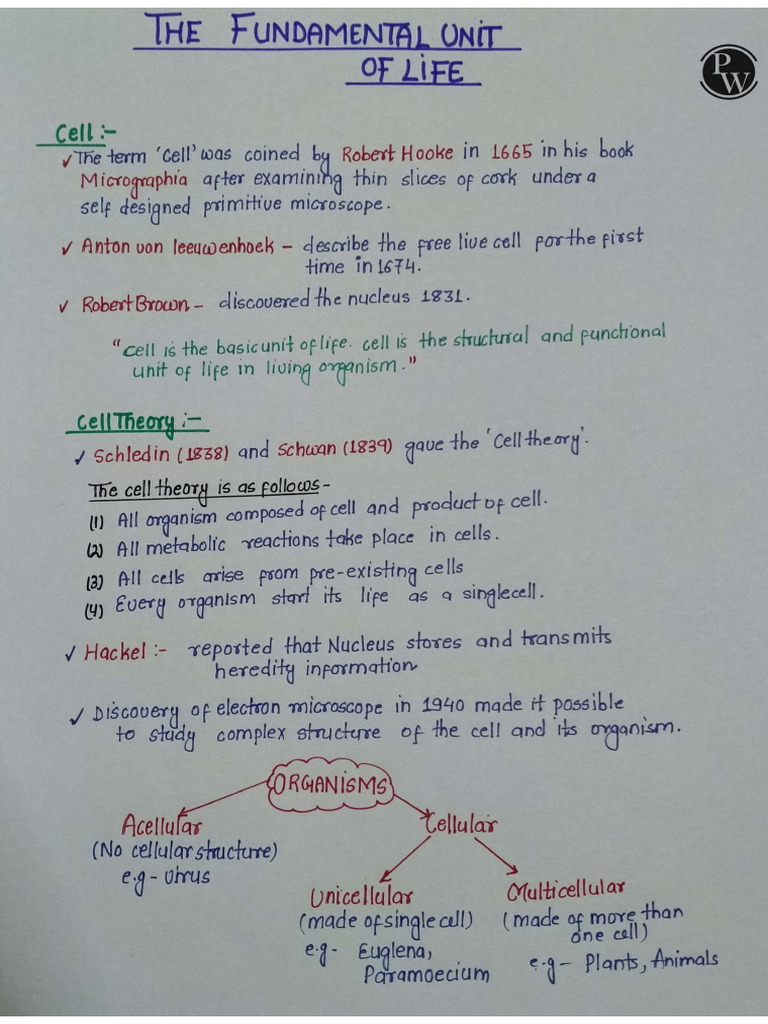 THE FUNDAMENTAL UNIT
OF LIFE
PW
Cell :-
✓ The term 'cell' was coined by Robert Hooke in 1665 in his book
Micrographia after examining thin slices of cork under a
self designed primitive microscope.
✓ Anton von leeuwenhoek - describe the free live cell for the first
time in 1674.
✓ Robert Brown - discovered the nucleus 1831.
"cell is the basic unit of life. cell is the structural and functional
unit of life in living organism."
Cell Theory :-
✓ Schledin (1838) and Schwan (1839) gave the 'Cell theory'.
The cell theory is as follows -
(1) All organism composed of cell and product of cell.
(2) All metabolic reactions take place in cells.
(3) All cells arise from pre-existing cells
(4) Every organism start its life as a single cell.
✓ Hackel :- reported that Nucleus stores and transmits
heredity information
✓ Discovery of electron microscope in 1940 made it possible
to study complex structure of the cell and its organism.
ORGANISMS
Acellular
(No cellular structure)
e.g - virus
Cellular
Unicellular
(made of single cell)
e.g - Euglena,
Paramoecium
Multicellular
(made of more than
one cell)
e.g - Plants, Animals